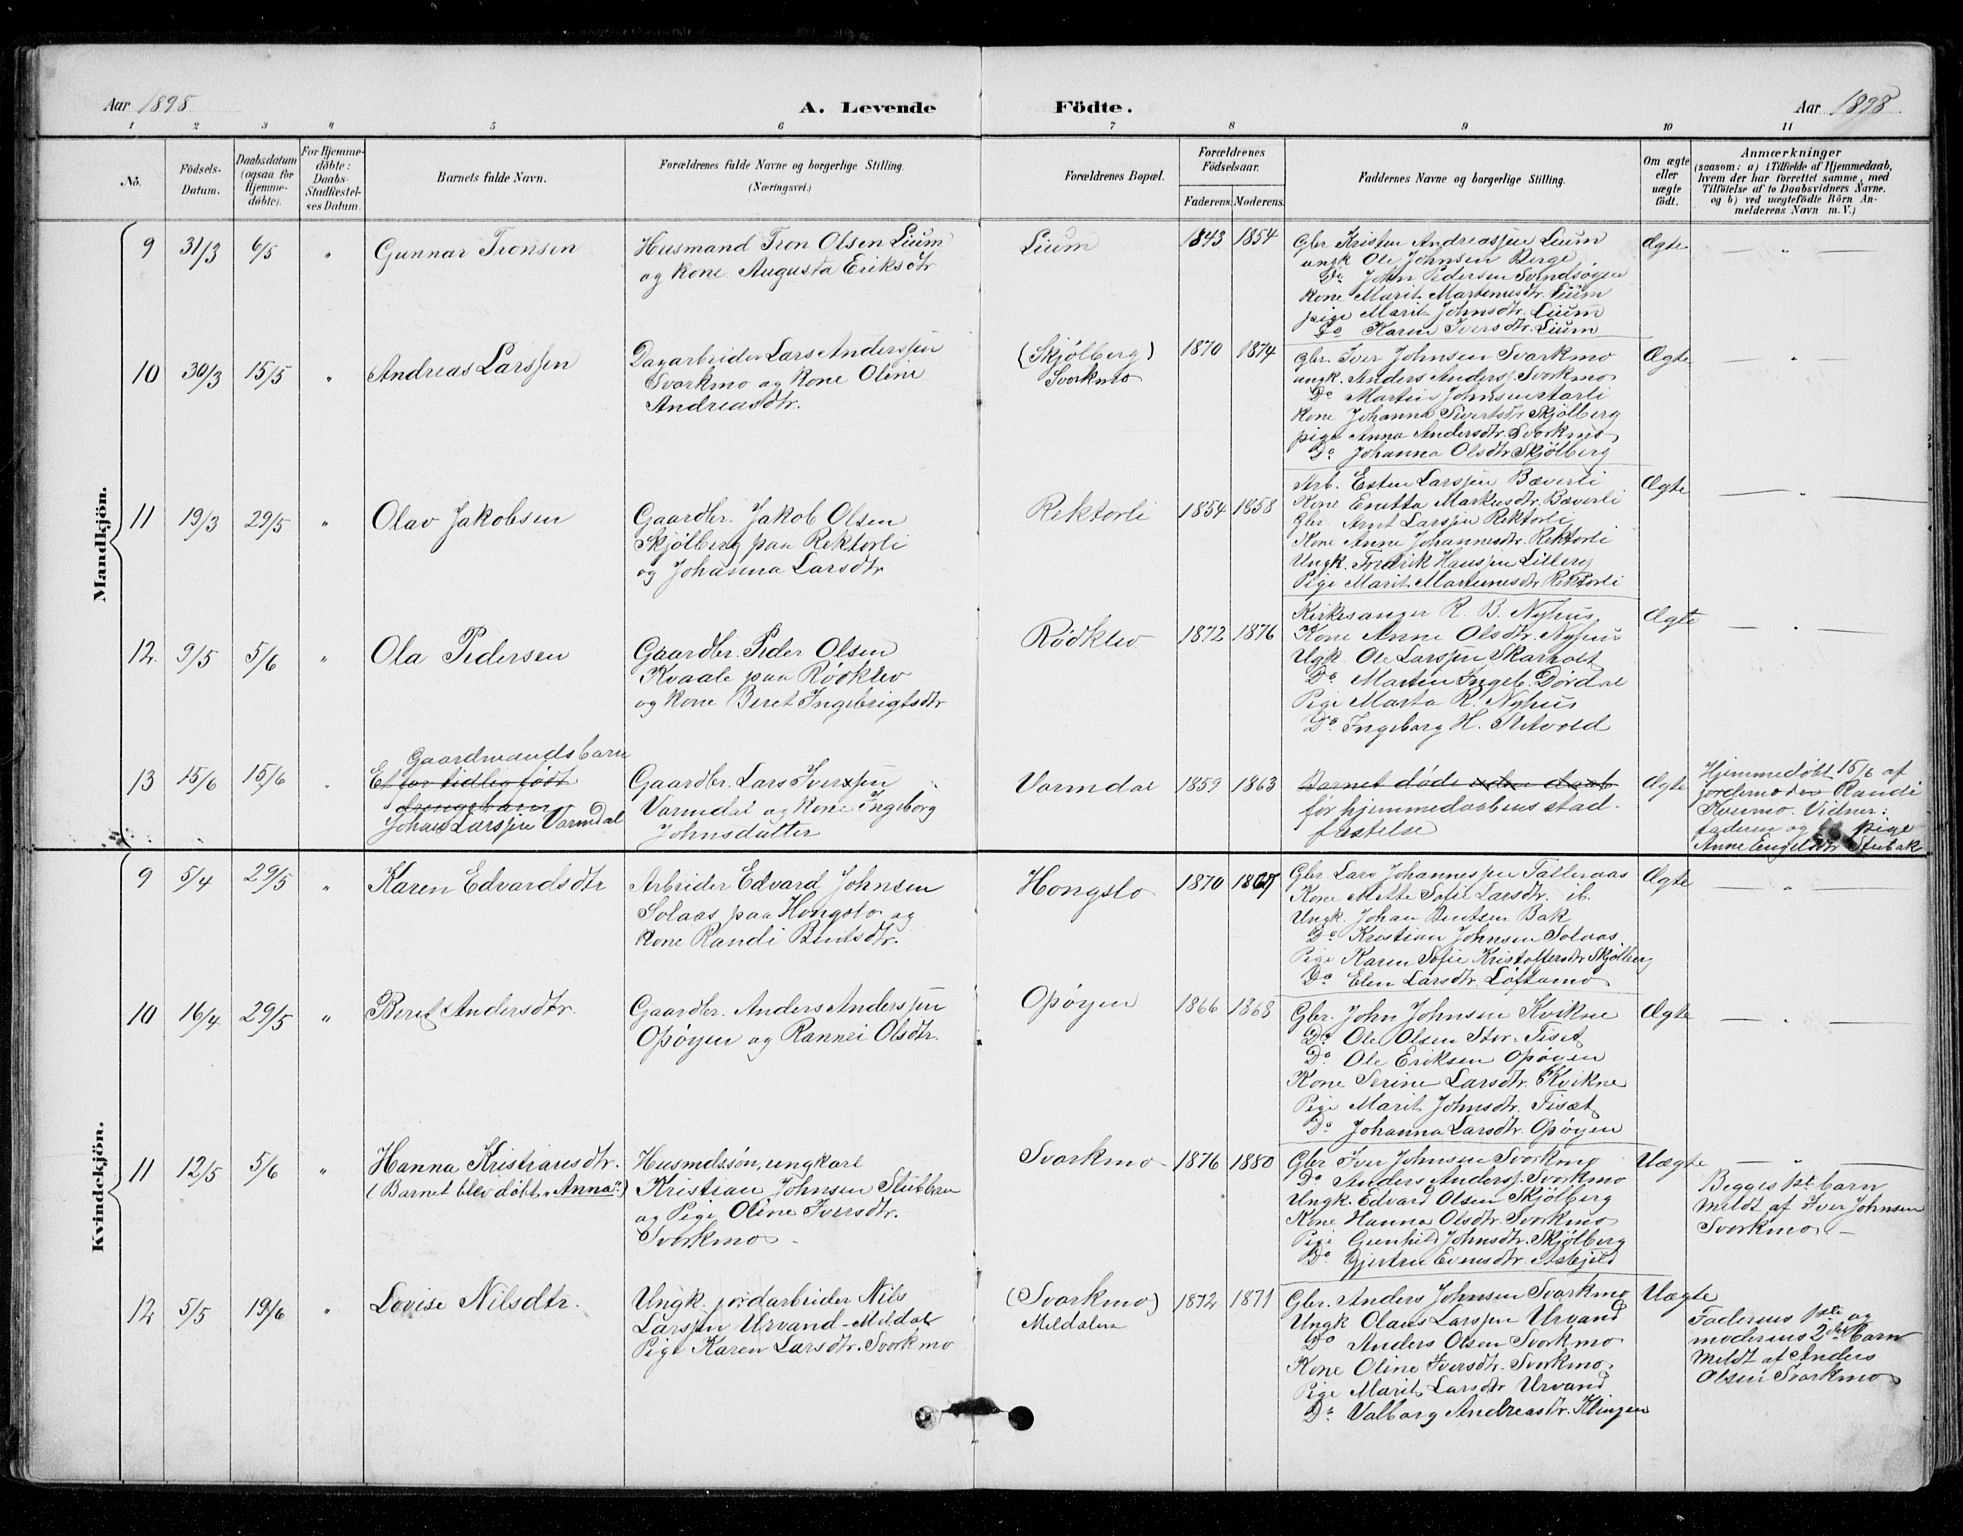 Aar 1898
A. Levende
Födte.
Aar 1898
1 2 3 4 5 6 7 8 9 10 11
No.
Födsels-
Datum.
Daabsdatum
(ogsaa för
Hjemme-
döbte).
For Hjemme-
döbte:
Daabs-
Stadfæstel-
ses Datum.
Barnets fulde Navn.
Forældrenes fulde Navne og borgerlige Stilling.
(Næringsvei.)
Forældrenes Bopæl.
Forældrenes
Födselsaar.
Faderens.
Moderens.
Faddernes Navne og borgerlige Stilling.
Om ægte
eller
uægte
født.
Anmærkninger
(saasom: a) i Tilfælde af Hjemmedaab,
hvem der har forrettet samme, med
Tilföielse af to Daabsvidners Navne.
og b) ved uægtefödte Börn An-
melderens Navn m. V.)
Mandkjön.
9 31/3 6/5 " Gunnar Tronsen
Husmand Tron Olsen Lium
og kone Augusta Eriksdtr
Lium 1843 1854
Gbr Kristen Andreassen Lium
ungk Ole Johnsen Berge
Do John Pedersen Svindsøyen
Kone Marit Martinusdtr. Lium
pige Marit Johnsdtr. Lium
Do Karen Iversdtr. Lium
Ægte — " —
10 30/3 15/5 " Andreas Larssen
Dagarbeider Lars Anderssen
Svorkmo og kone Oline
Andreasdtr.
(Skjølberg)
Svorkmo
1870 1874
Gbr. Iver Johnsen Svorkmo
ungk. Anders Anders. Svorkmo
Do Martin Johnsen Aarli
Kone Johanna Sivertsdr Skjølberg
pige Anna Andersdtr. Svorkmo
Do Johanna Olsdtr Skjølberg
Ægte — " —
11 19/3 29/5 " Olav Jakobsen
Gaardbr. Jakob Olsen
Skjølberg paa Rektorli
og Johanna Larsdtr
Rektorli 1854 1858
Arb. Esten Larssen Bæverli
Kone Enetta Markusdtr. Bæverli
Gbr. Arnt Larssen Rektorli
Kone Anne Johannesdtr. Rektorli
Ungk. Fredrik Hanssen Lillery
Pige Marit Martinusdtr. Rektorli
Ægte — " —
12. 9/5 5/6 " Ola Pedersen
Gaardbr. Peder Olsen
Kvaale paa Rödklev
og kone Beret Ingebrigtsdtr
Rödklev 1872 1876
Kirkesanger R. B. Nyhus
Kone Anne Olsdtr. Nyhus
Ugk. Ole Larssen Skarholt
Do Marten Ingeb. Dordal
Pige Marta R. Nyhus
Do Ingeborg H. Stetvold
Ægte — " —
13 15/6 15/6 "
Gaardmandsbarn
Et for tidlig født
drengebarn
Johan Larssen Varmdal
Gaardbr. Lars Iverssen
Varmdal og kone Ingeborg
Johnsdatter
Varmdal 1859 1863
Barnet døde uden daab
før hjemmedaabens stad-
fæstelse
Ægte
Hjemmedøbt 15/6 af
jordemoder Randi
Kvernmo. Vidner:
faderen og pige
Anne Engelsdtr Stubak
Kvindekjön.
9 5/4 29/5 " Karen Edvardsdtr
Arbeider Edvard Johnsen
Solaas paa Hongslo og
kone Randi Bentsdtr.
Hongslo 1870 1867
Gbr Lars Johannessen Talleraas
Kone Mette Sofie Larsdtr. ib.
Ungk. Johan Bentsen Bak
Do Kristian Johnsen Solaas
Pige Karen Sofie Kristoffersdtr Skjølberg
Do Elen Larsdtr. Løftamo
Ægte — " —
10 16/4 29/5 " Beret Andersdtr.
Gaardbr. Anders Anderssen
Opøyen og Rannei Olsdtr.
Opøyen 1866 1868
Gbr. John Johnsen Kvikne
Do Ole Olsen Stor-Tiset
Do Ole Eriksen Opøyen
Kone Serine Larsdtr. Kvikne
Pige Marit Johnsdtr. Tiset
Do Johanna Larsdtr. Opøyen
Ægte — " —
11 12/5 5/6 " Hanna Kristiansdtr.
(Barnet blev døbt "Anna")
Husmdssøn, ungkarl
Kristian Johnsen Stubban
og Pige Oline Iversdtr.
Svorkmo
Svorkmo 1876 1880
Gbr Iver Johnsen Svorkmo
Do Anders Anders. Svorkmo
Ungk. Edvard Olsen Skjølberg
Kone Hanna Olsdtr. Svorkmo
Pige Gunhild Johnsdtr. Skjølberg
Do Gjertru Evensdtr. Asbjell
Uægte — " —
Begges 1st barn
Meldt af Iver Johnsen
Svorkmo. —
12 5/5 19/6 Lovise Nilsdtr.
Ungk. jordarbeider Nils
Larssen Urvand-Meldal
Pige Karen Larsdtr. Svorkmo
(Svorkmo)
Meldalen
1872 1871
Gbr. Anders Johnsen Svorkmo
Ungk Olaus Larssen Urvand
Do Anders Olsen Svorkmo
Kone Oline Iversdtr. Svorkmo.
Pige Marit Larsdtr Urvand
Do Valborg Andreasdtr. Klingen
Uægte
Faderens 1ste og
moderens 2det barn
Meldt af Anders
Olsen Svorkmo